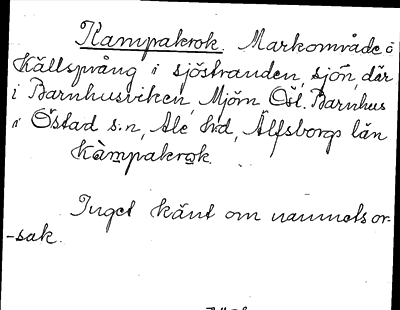 Kampakrok. Markområde o
Källsprång i sjöstranden, sjön, där
i Barnhusviken, Mjörn Öst. Barnhus
i Östad s:n, Ale h:d, Älfsborgs län
Kàmpakrok.
Inget känt om namnets or-
-sak.